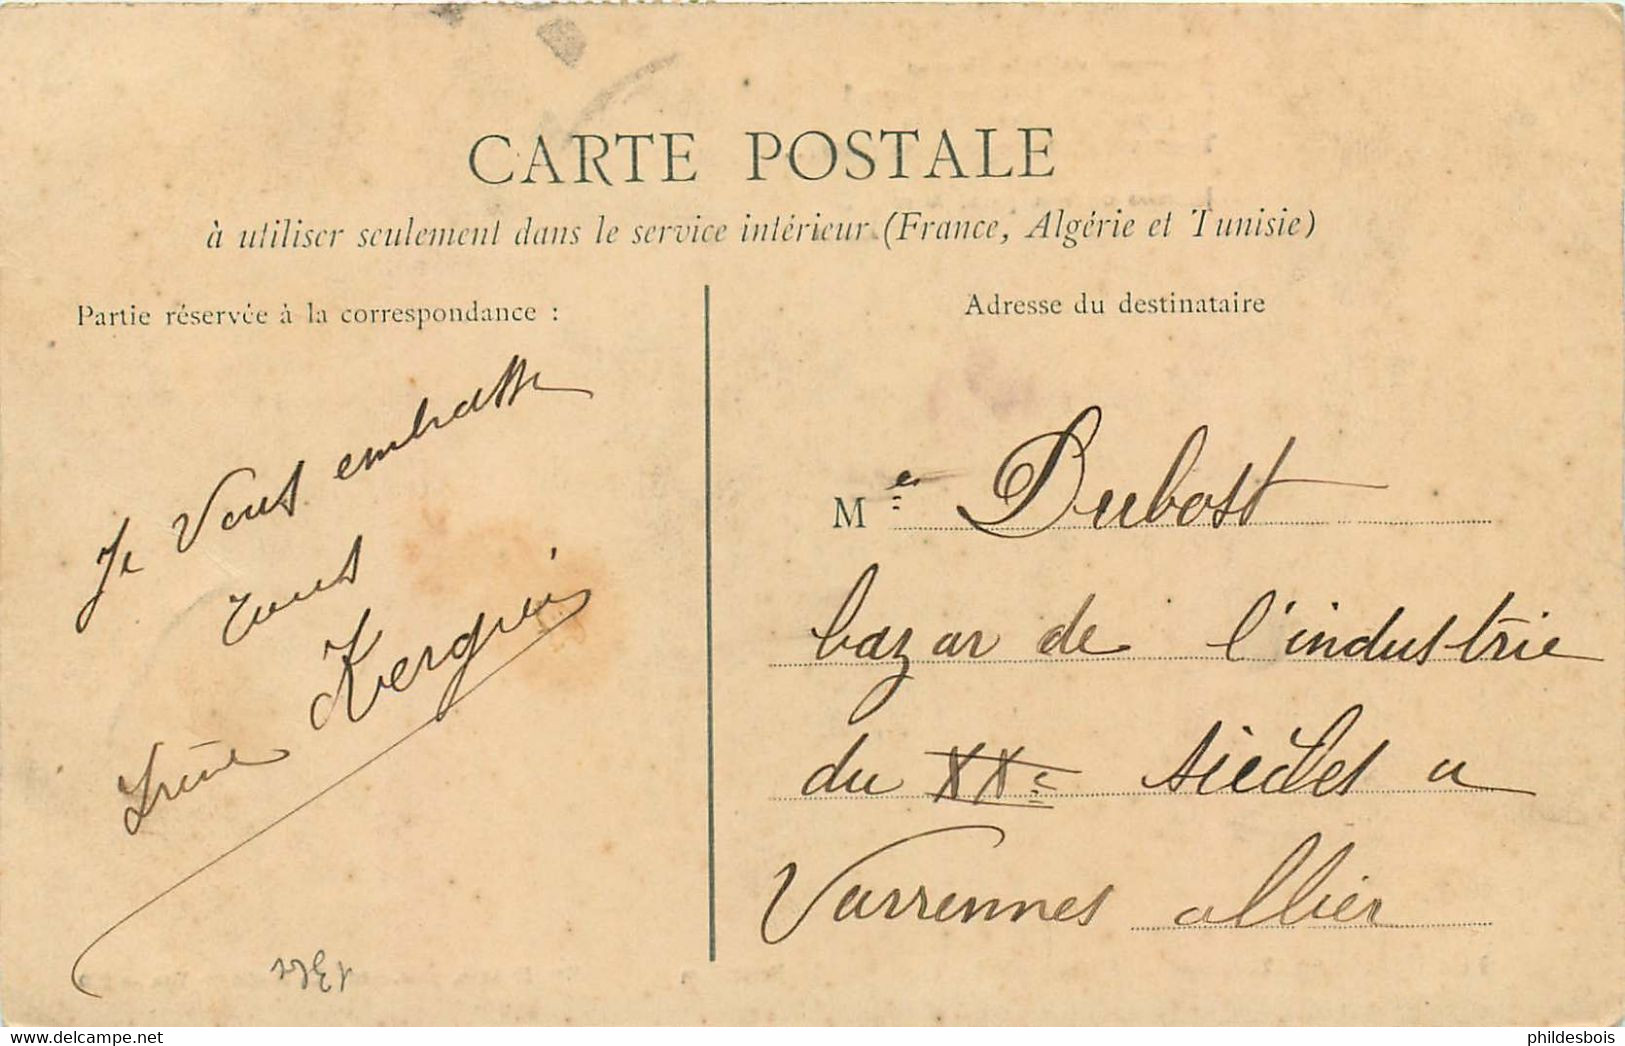 CARTE POSTALE
à utiliser seulement dans le service intérieur (France, Algérie et Tunisie)
Partie réservée à la correspondance :
Je Vous embrasse
tous
Irène
Adresse du destinataire
Me Dubost
bazar de l'industrie
du XXe siècles a
Varrennes allier
www.delcampe.net
phildesbois